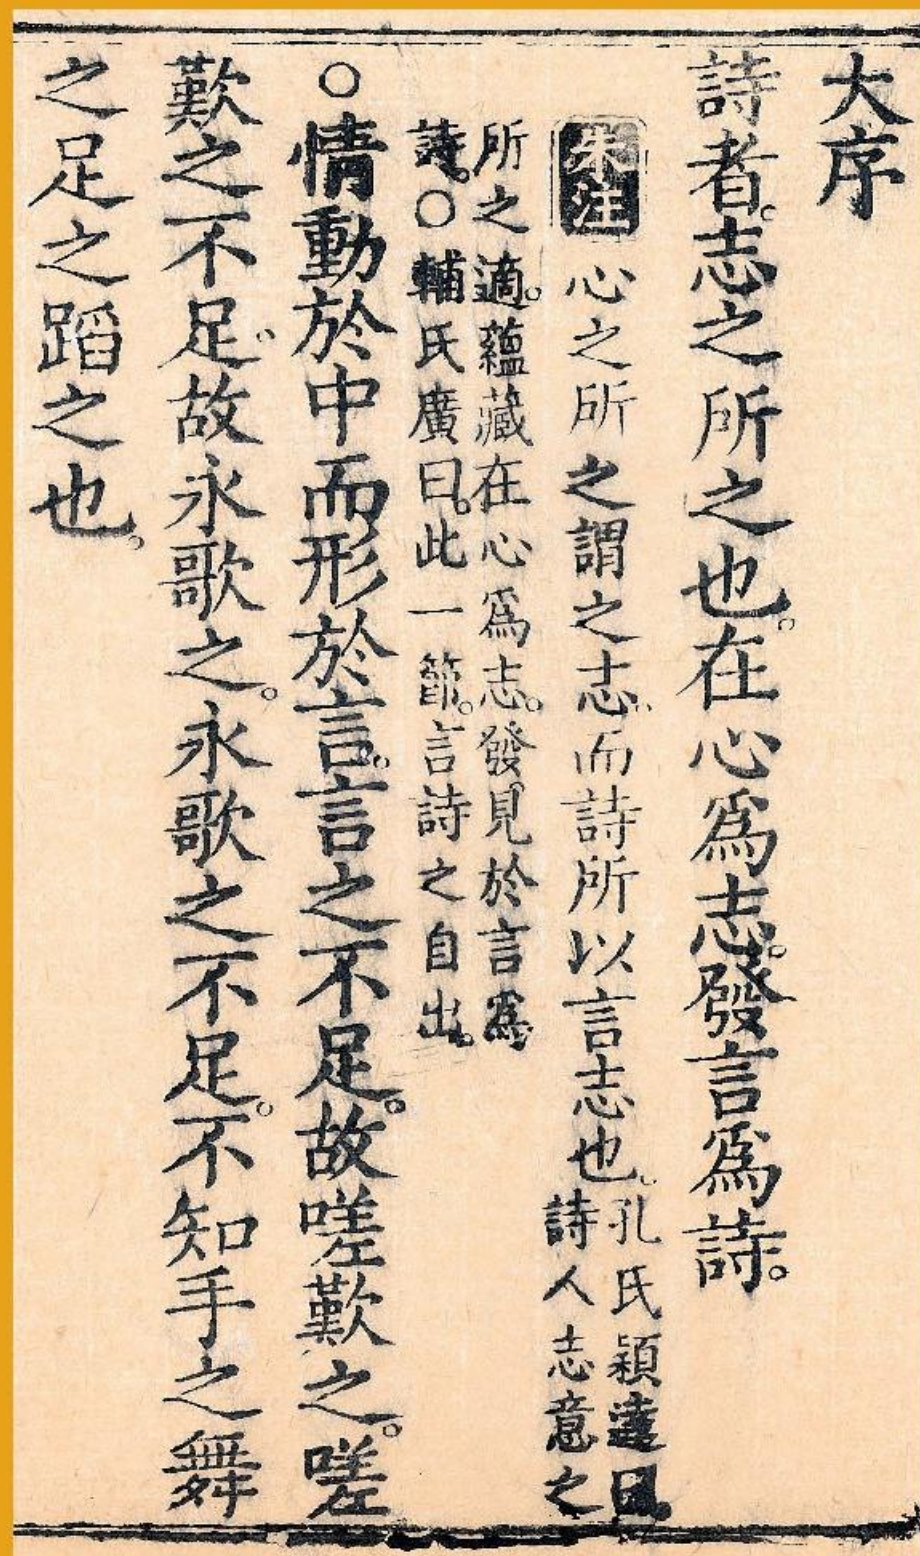 大序
詩者。志之所之也。在心爲志。發言爲詩。
朱注 心之所之謂之志。而詩所以言志也。孔氏穎達曰。
詩人志意之
所之適。蘊藏在心爲志。發見於言爲
詩。○輔氏廣曰。此一節。言詩之自出。
○情動於中而形於言。言之不足。故嗟歎之。嗟
歎之不足。故永歌之。永歌之不足。不知手之舞
之足之蹈之也。